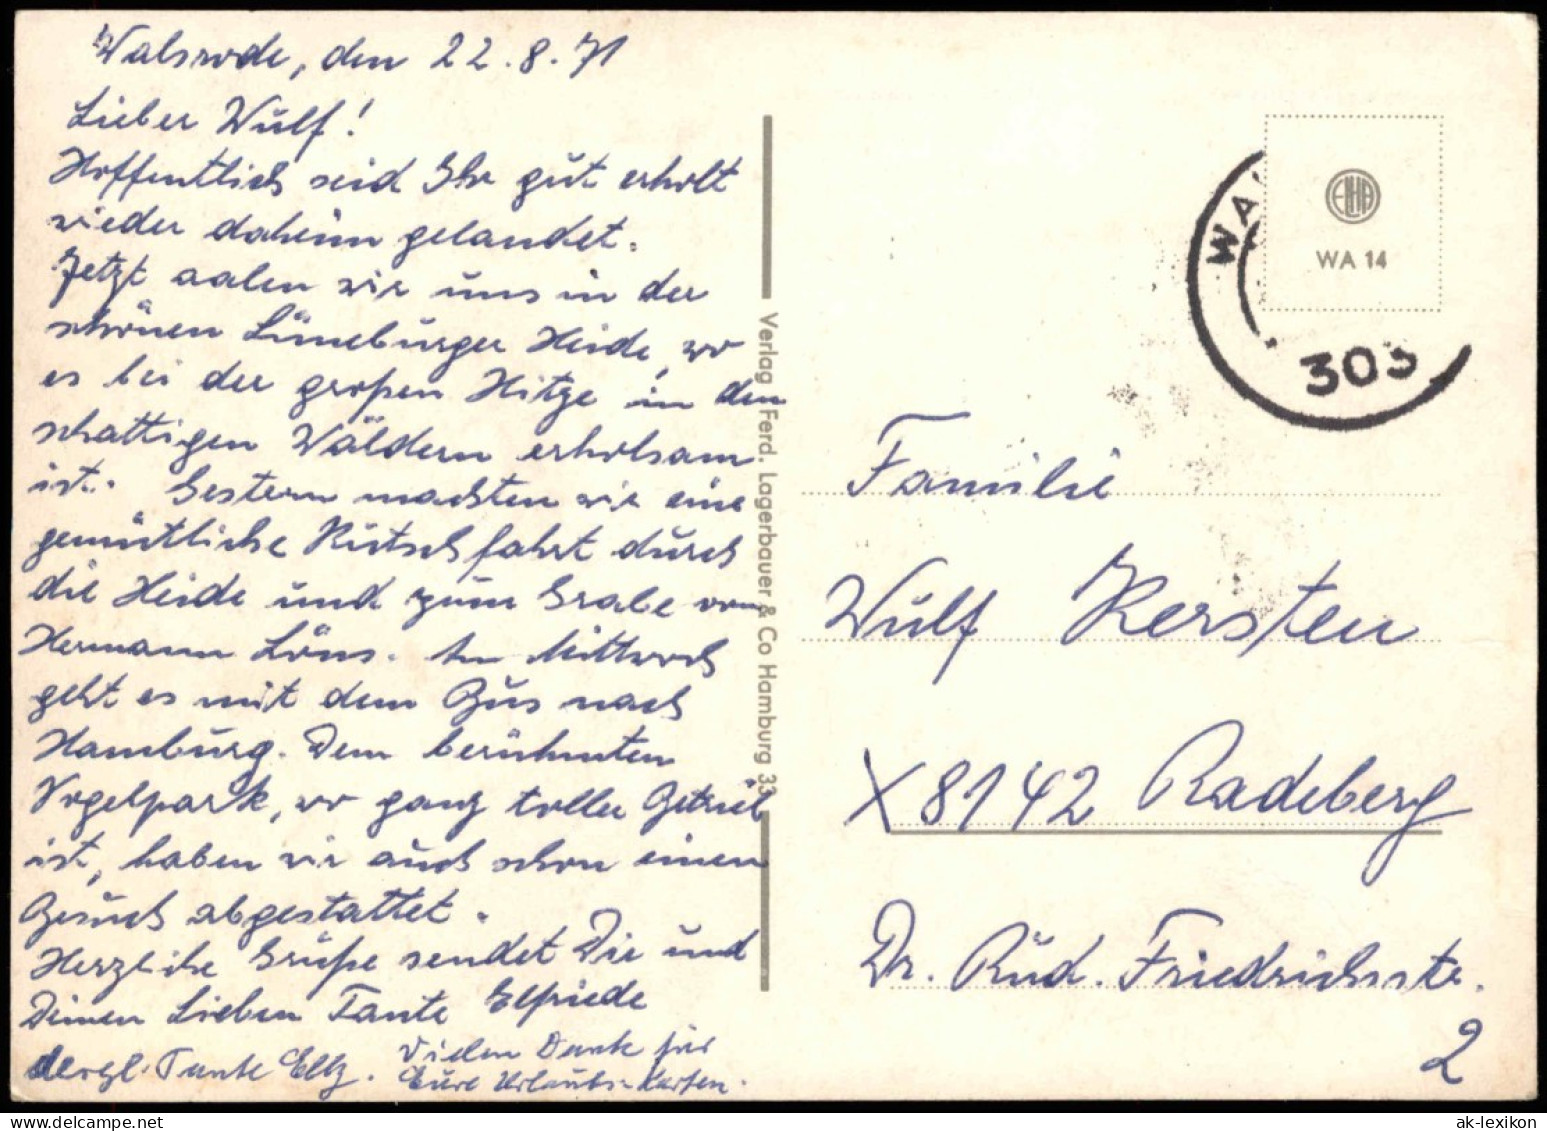 Walsrode, den 22.8.71
Lieber Wulf!
Hoffentlich seid Ihr gut erholt
wieder daheim gelandet.
Jetzt aalen wir uns in der
schönen Lüneburger Heide, wo
es bei der großen Hitze in den
schattigen Wäldern erholsam
ist. Gestern machten wir eine
gemütliche Kutschfahrt durch
die Heide und zum Grabe von
Hermann Löns. Am Mittwoch
geht es mit dem Bus nach
Hamburg. Dem berühmten
Vogelpark, wo ganz toller Betrieb
ist, haben wir auch schon einen
Besuch abgestattet.
Herzliche Grüße sendet Dir und
Deinen Lieben Tante Elfriede
dergl. Tante Elly. Vielen Dank für
Eure Urlaubs-Karten.
Verlag Ferd. Lagerbauer & Co Hamburg 33
WA
303
ELHA
WA 14
Familie
Wulf Kersten
X 8142 Radeberg
Dr. Rud. Friedrichsstr.
2
ak-lexikon.com